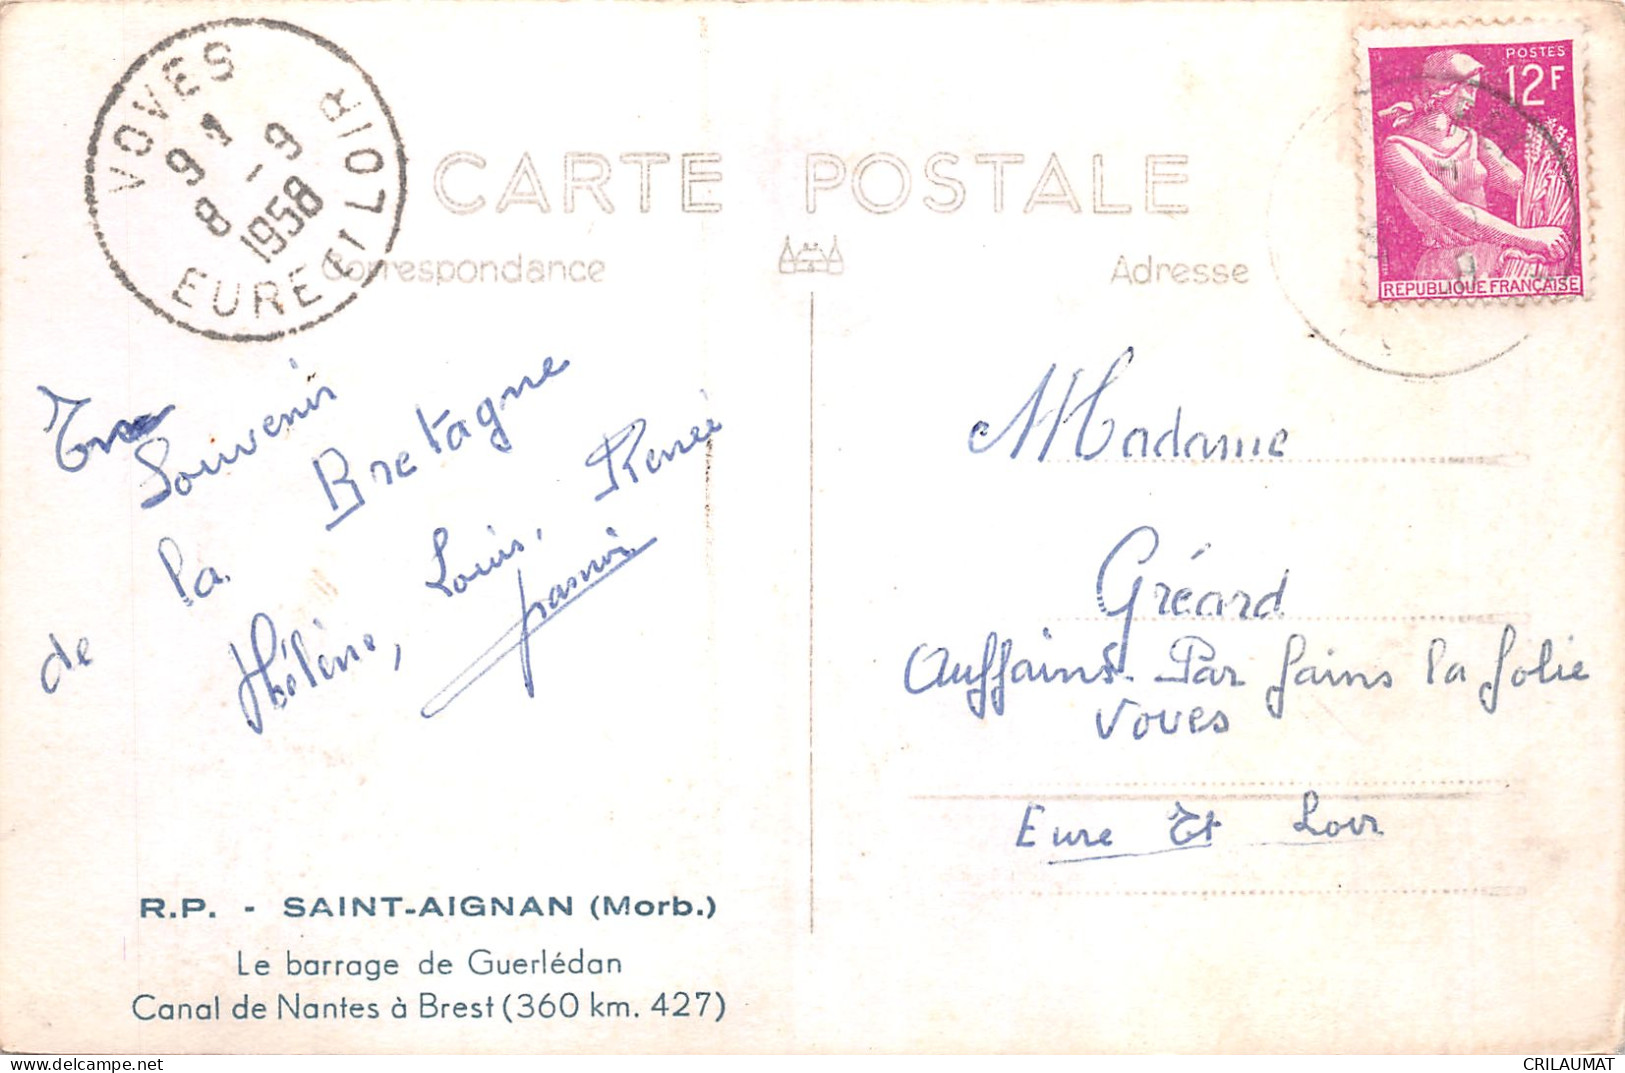 VOVES
9 H
8 -9
1958
EURE ET LOIR
CARTE POSTALE
Correspondance
Adresse
POSTES
12F
REPUBLIQUE FRANÇAISE
Souvenir
de la Bretagne
Hélène, Louis, Renée
Madame
Gréard
Auffains Par Fains la folie
Voves
Eure Et Loir
R.P. - SAINT-AIGNAN (Morb.)
Le barrage de Guerlédan
Canal de Nantes à Brest (360 km. 427)
CRILAUMAT